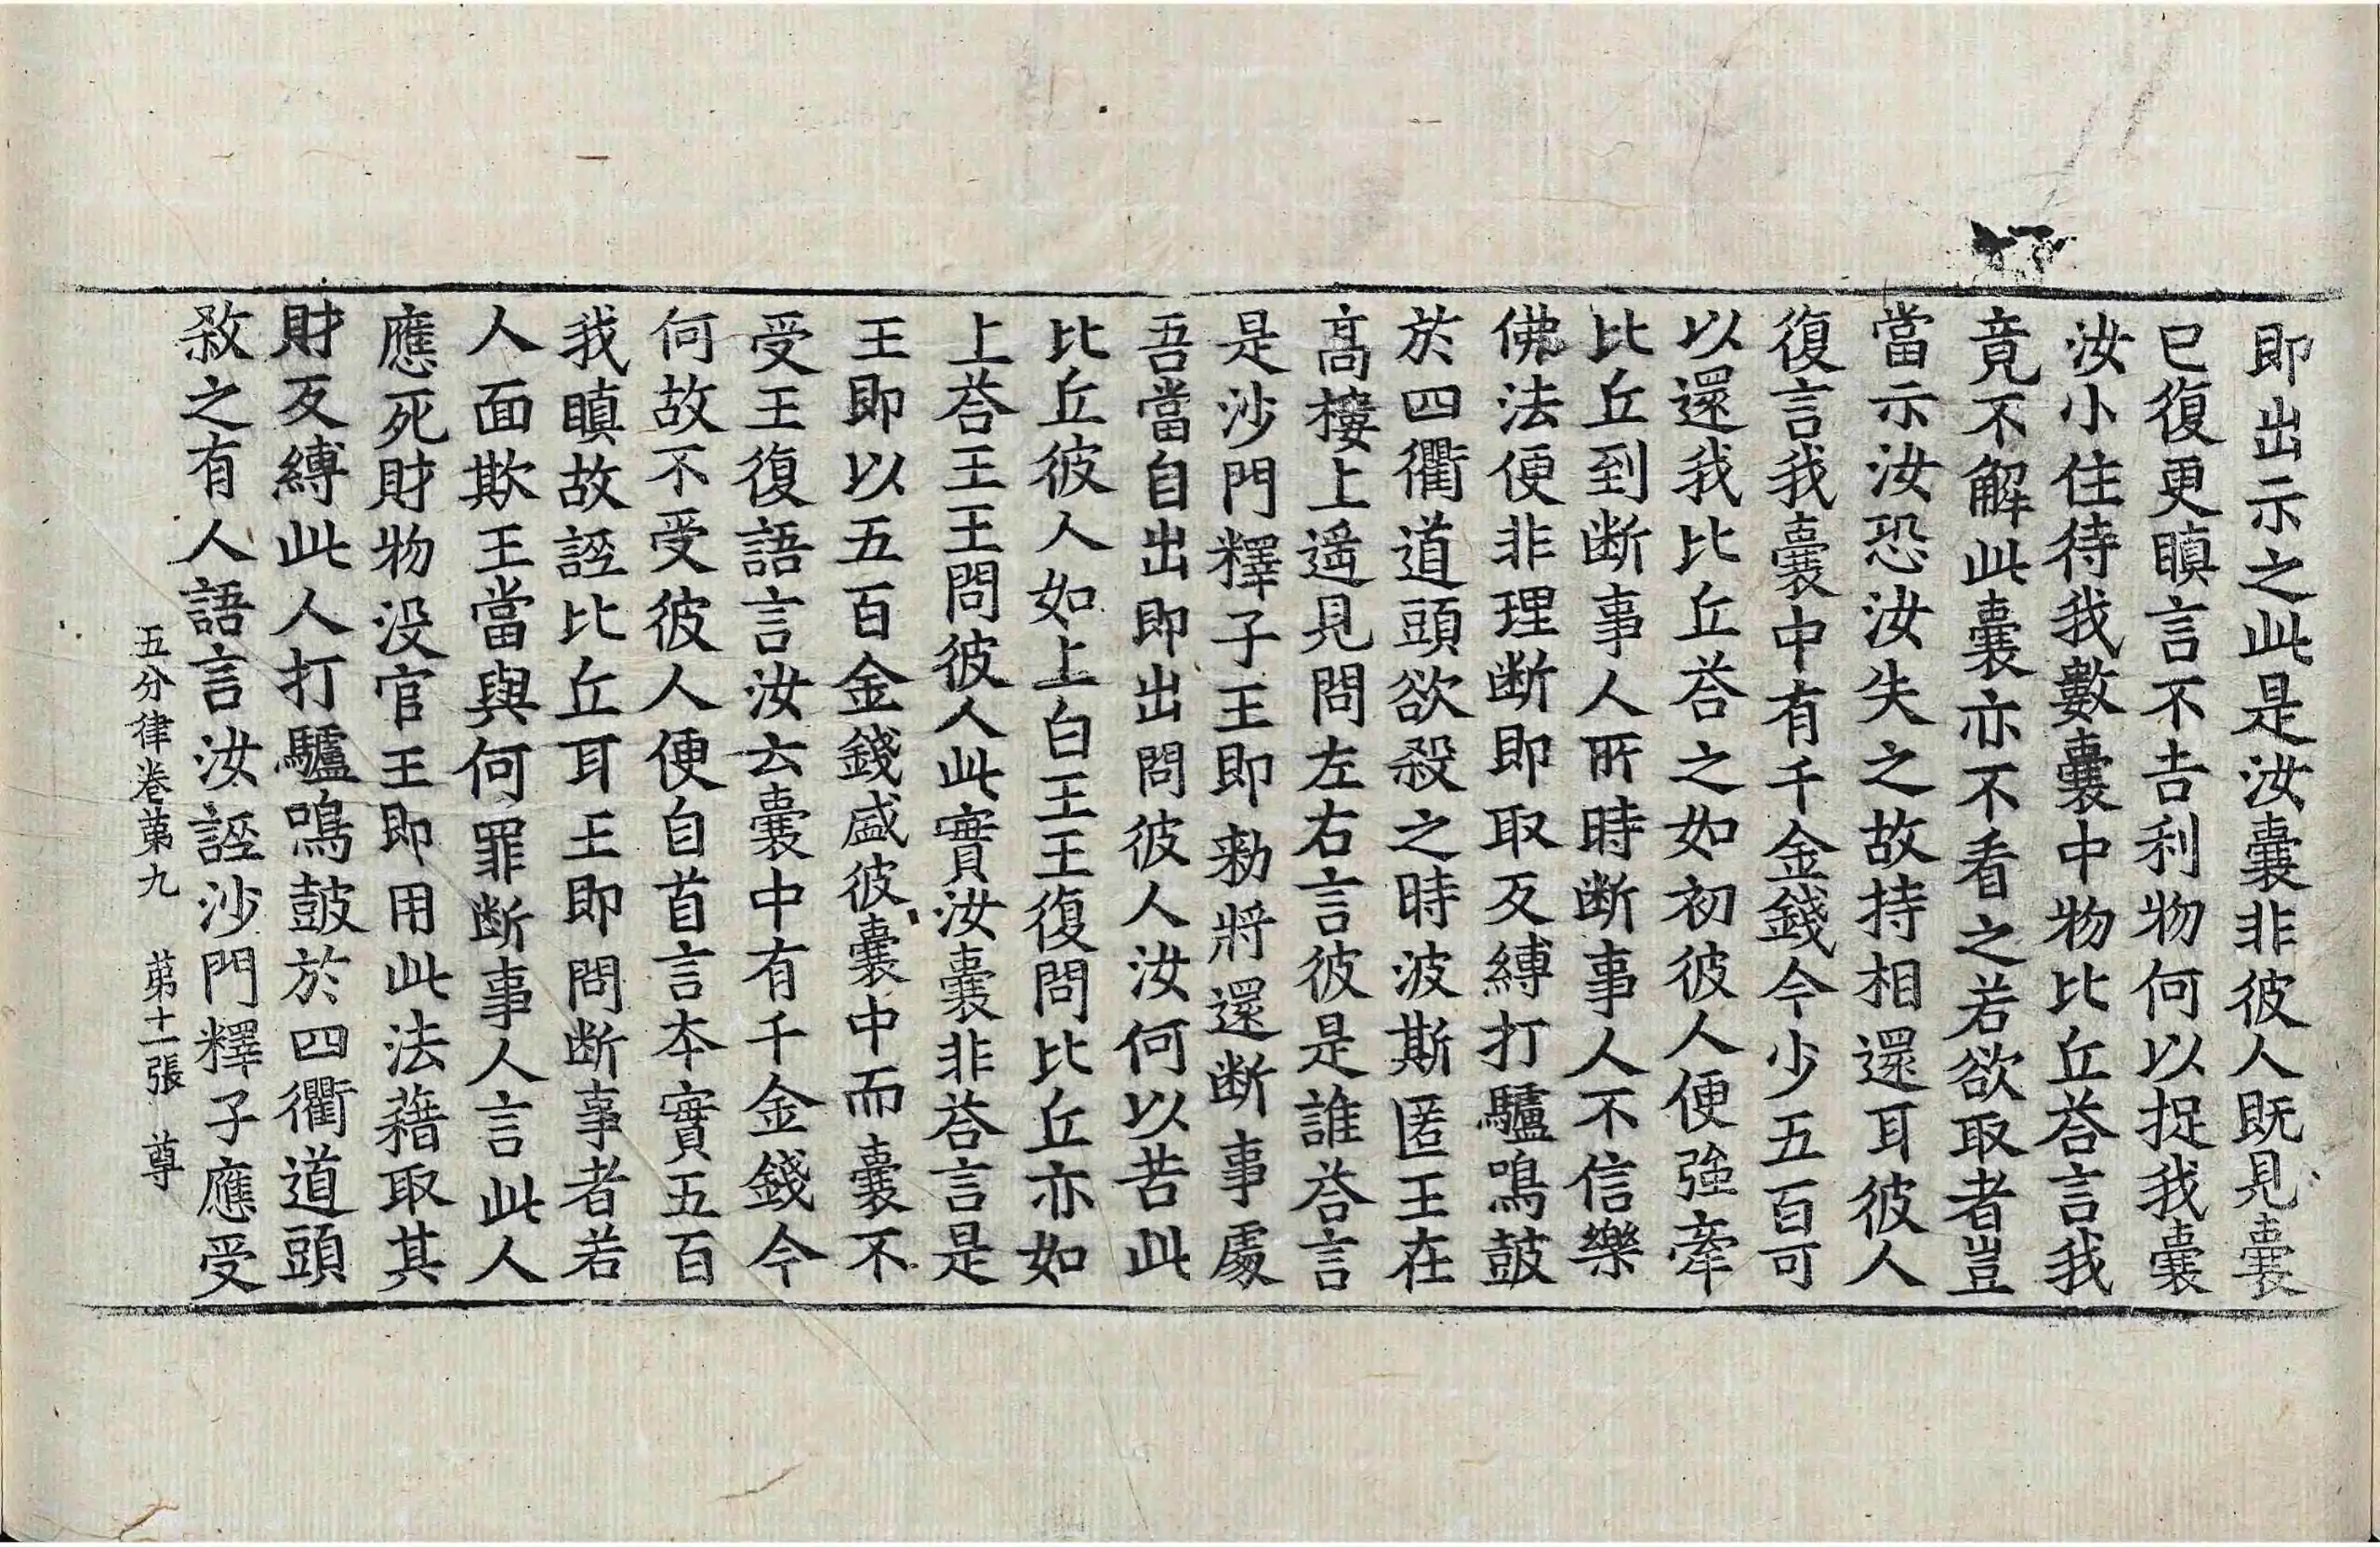 即出示之此是汝囊非彼人既見囊
已復更瞋言不告利物何以捉我囊
汝小住待我數囊中物比丘荅言我
竟不解此囊亦不看之若欲取者豈
當示汝恐汝失之故持相還耳彼人
復言我囊中有千金錢今少五百可
以還我比丘荅之如初彼人便強牽
比丘到断事人所時断事人不信樂
佛法便非理断即取反縛打驢鳴鼓
於四衢道頭欲殺之時波斯匿王在
高樓上遥見問左右言彼是誰荅言
是沙門釋子王即勑將還断事處
吾當自出即出問彼人汝何以苦此
比丘彼人如上白王王復問比丘亦如
上荅王王問彼人此實汝囊非荅言是
王即以五百金錢盛彼囊中而囊不
受王復語言汝云囊中有千金錢今
何故不受彼人便自首言本實五百
我瞋故誣比丘耳王即問断事者若
人面欺王當與何罪断事人言此人
應死財物没官王即用此法藉取其
財反縛此人打驢鳴鼓於四衢道頭
欲之有人語言汝誣沙門釋子應受
五分律卷苐九 苐十二張 尊